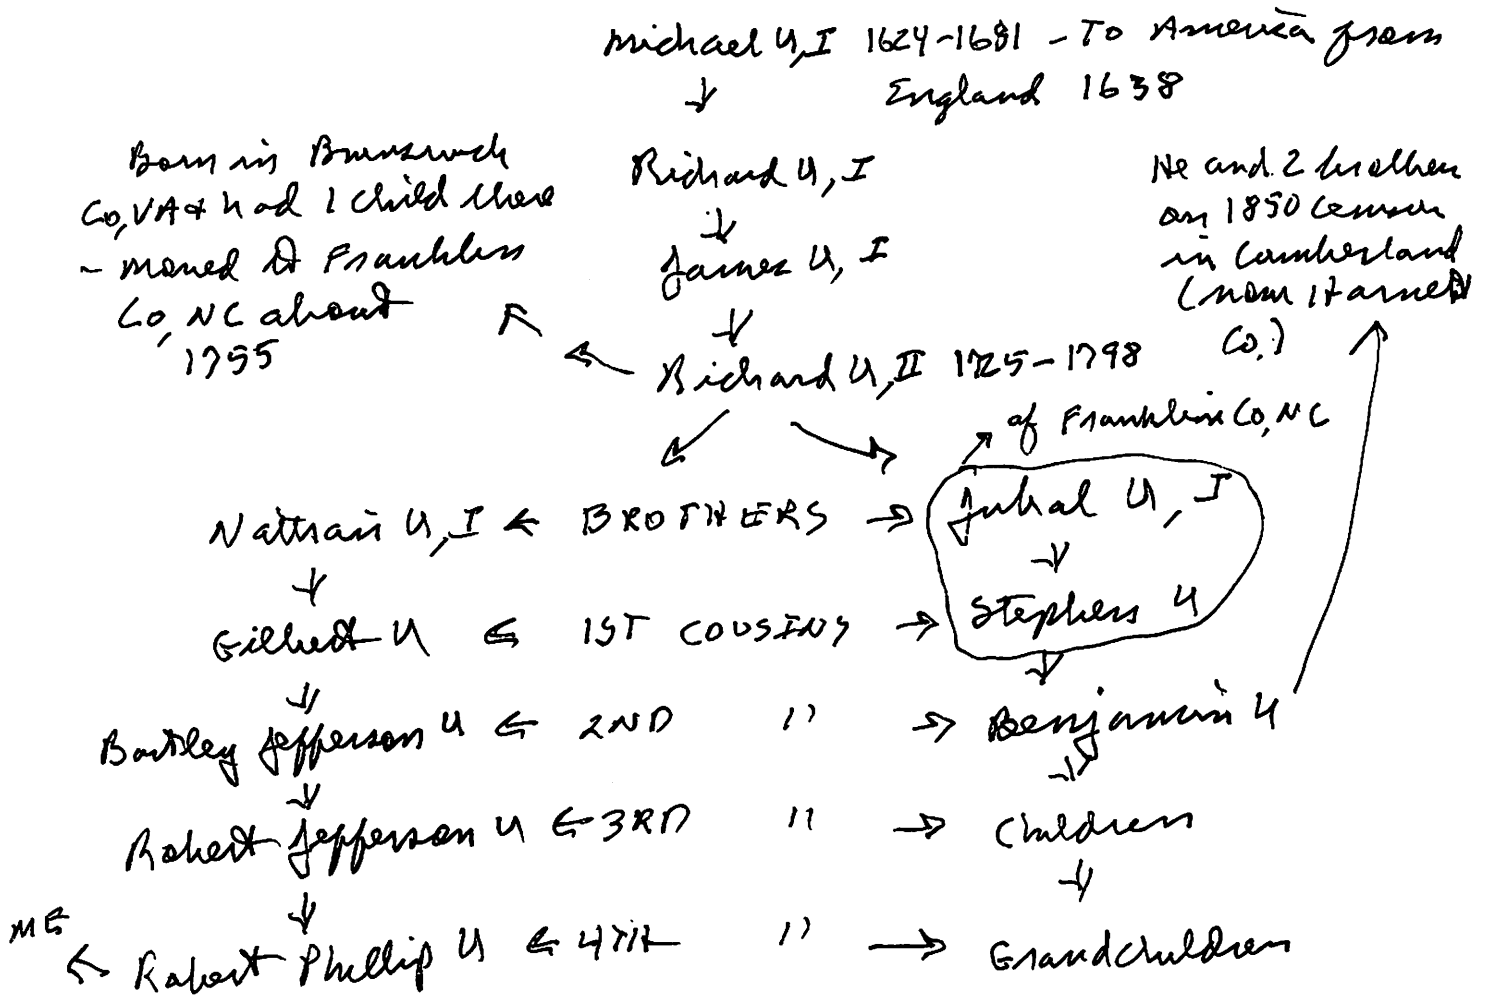 Michael U, I 1624-1681 - To America from
England 1638
Born in Brunswick
Co, VA & had 1 child there
- moved to Franklin
Co, NC about
1755
Richard U, I
James U, I
Richard U, II 1725-1798
He and 2 brothers
on 1850 census
in Cumberland
(now Harnett
Co.)
of Franklin Co, NC
Nathan U, I ← BROTHERS → Jubal U, I
Gilbert U ← 1ST COUSINS → Stephen U
Bartley Jefferson U ← 2ND " → Benjamin U
Robert Jefferson U ← 3RD " → Children
ME ← Robert Phillip U ← 4TH " → Grandchildren